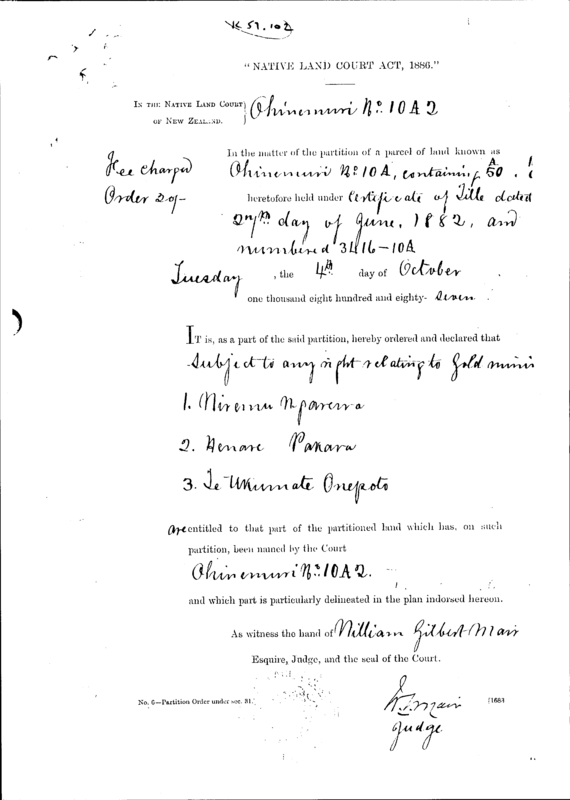 K 59.102
"NATIVE LAND COURT ACT, 1886."
IN THE NATIVE LAND COURT
OF NEW ZEALAND.
Ohinemuri No. 10A2
Fee charged
Order 20/-
In the matter of the partition of a parcel of land known as
Ohinemuri No. 10A, containing 50
heretofore held under Certificate of Title dated
27th day of June, 1882, and
numbered 3416-10A
Tuesday, the 4th day of October
one thousand eight hundred and eighty-seven.
IT is, as a part of the said partition, hereby ordered and declared that
Subject to any right relating to Gold
1. Wiremu
2. Henare
3. Te Ukumate Onepoto
are entitled to that part of the partitioned land which has, on such
partition, been named by the Court
Ohinemuri No. 10A2.
and which part is particularly delineated in the plan indorsed hereon.
As witness the hand of William Gilbert Mair
Esquire, Judge, and the seal of the Court.
No. 6—Partition Order under sec. 31.
Mair
Judge